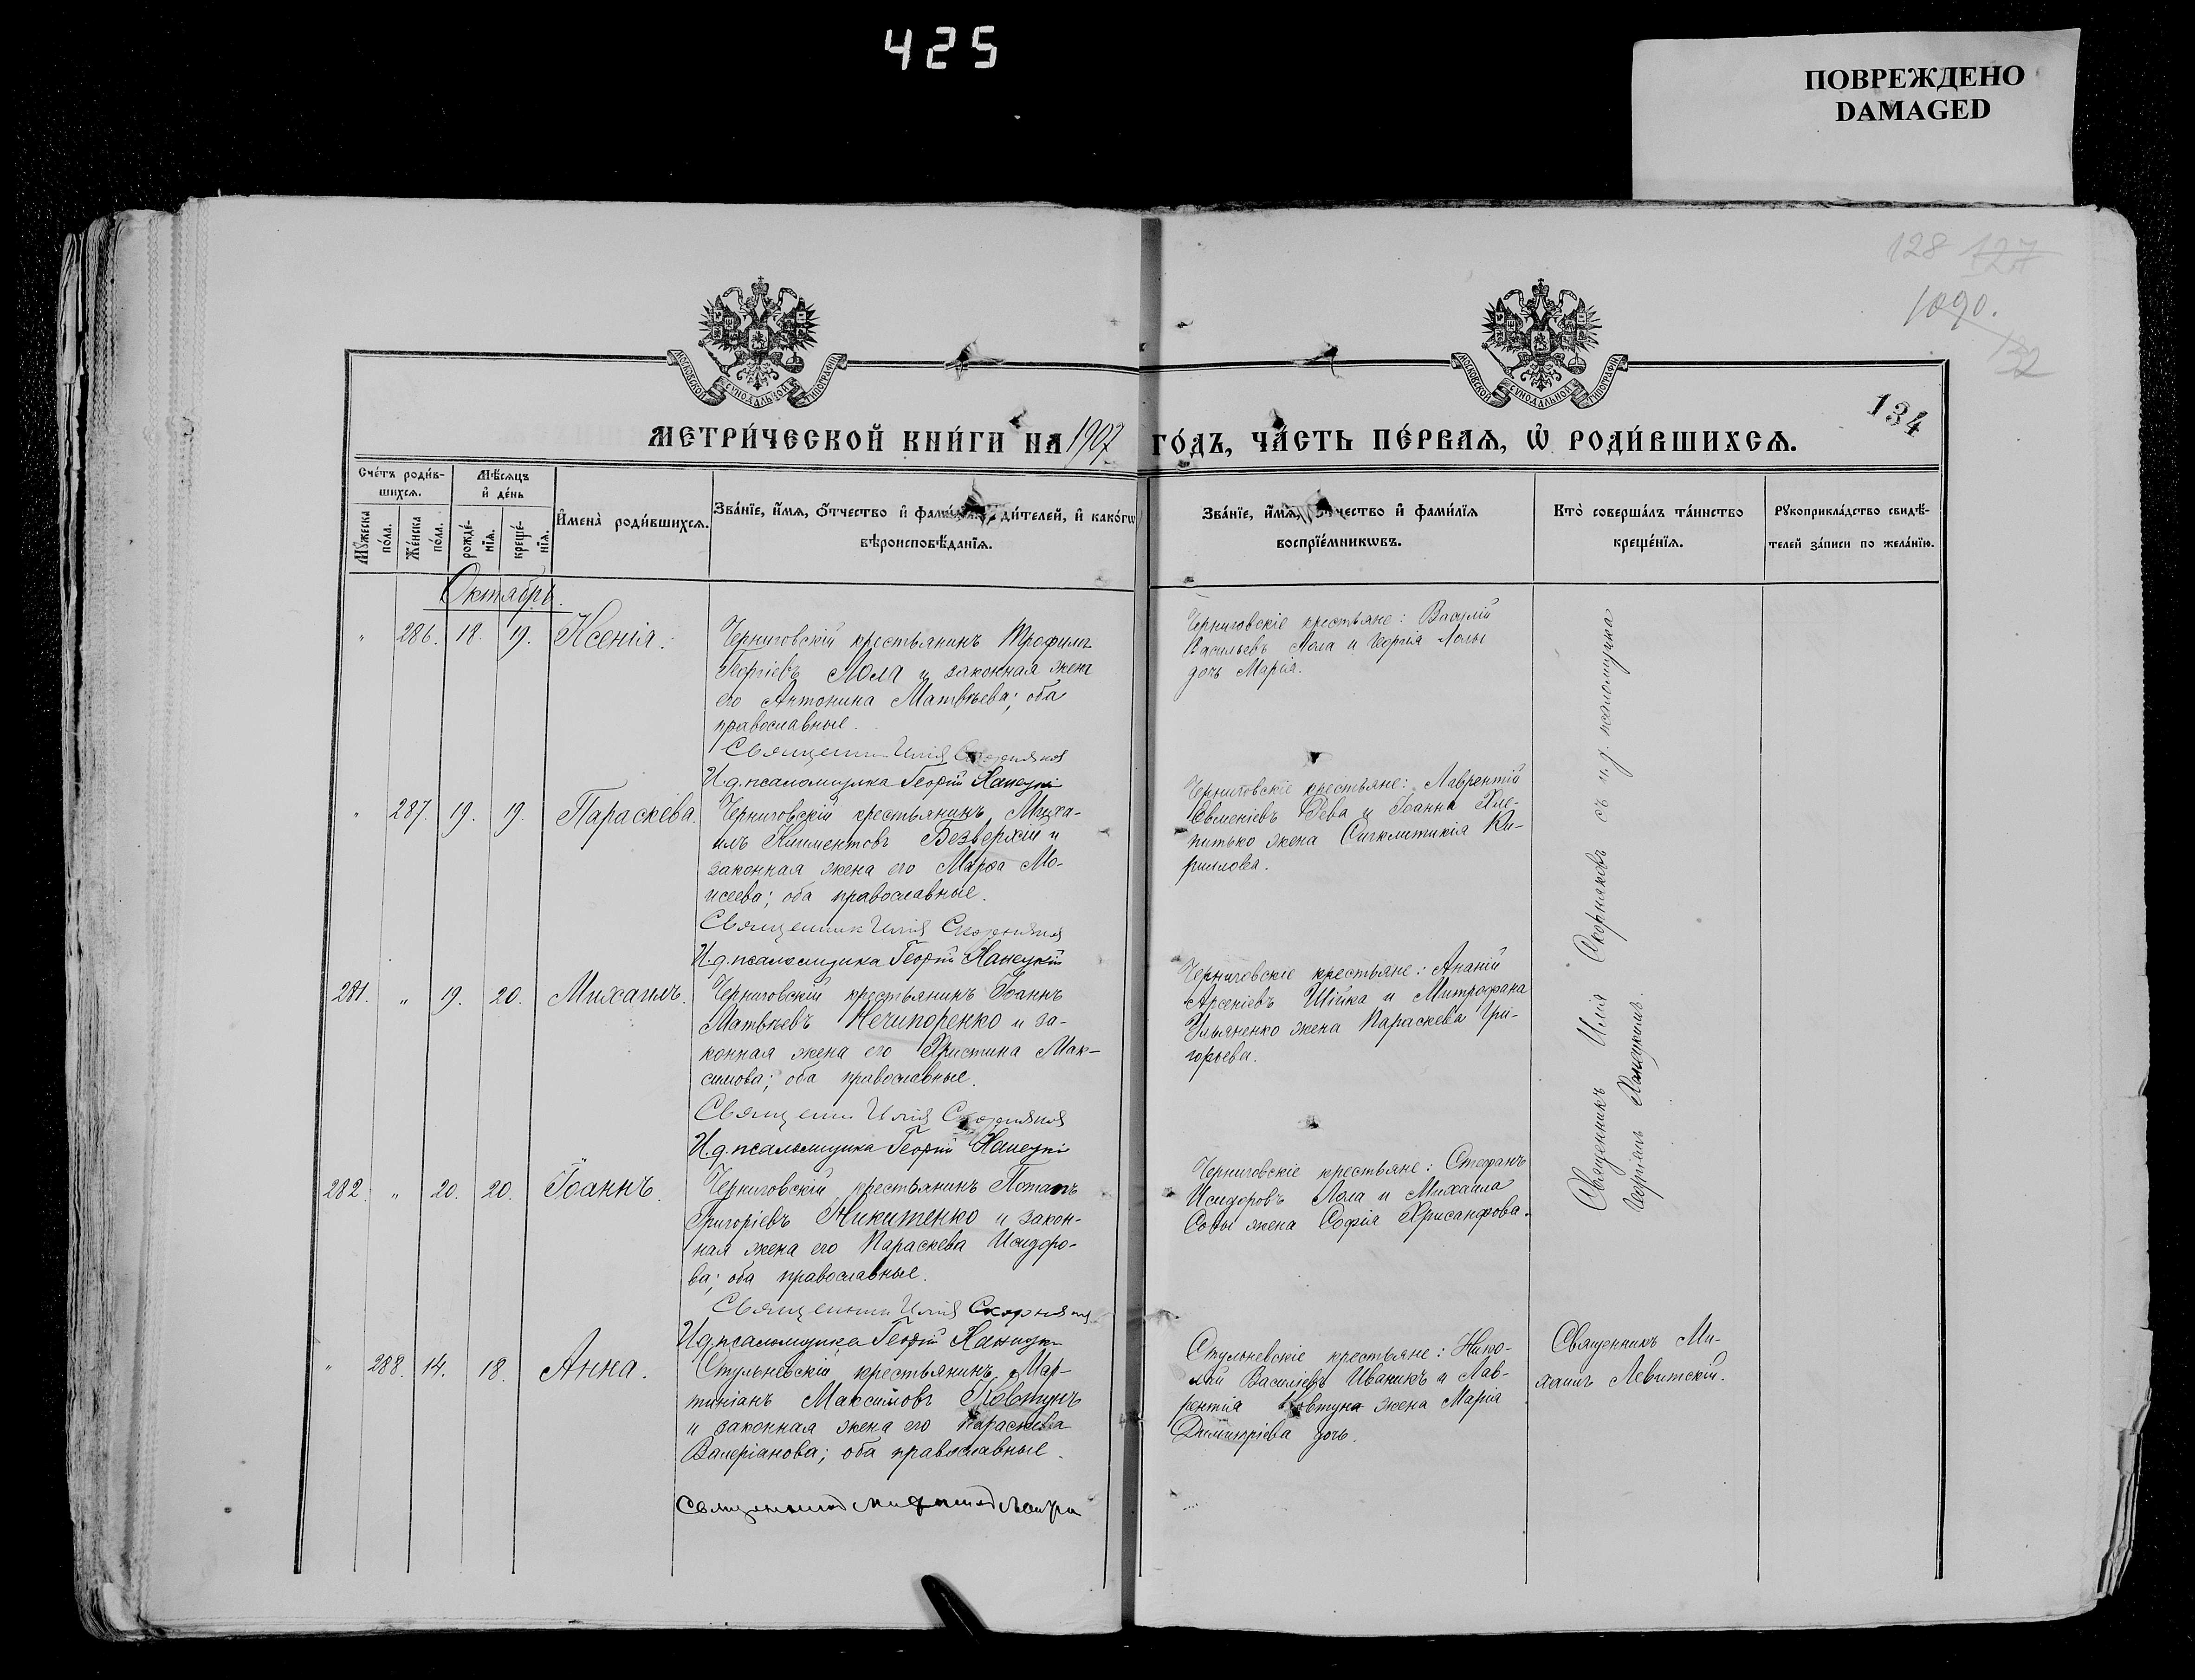 425
ПОВРЕЖДЕНО
DAMAGED
128 127
1090.
132
134
МОСКОВСКОЙ СѴНОДАЛЬНОЙ ТИПОГРАФІИ
МОСКОВСКОЙ СѴНОДАЛЬНОЙ ТИПОГРАФІИ
МЕТРИ́ЧЕСКОЙ КНИ́ГИ НА 1907 ГО́ДЪ, ЧА́СТЬ ПЕ́РВАѦ, Ѡ҆ РОДИ́ВШИХСѦ.
Сче́тъ роди́в-
шихсѧ.
Мꙋжеска
по́ла.
Же́нска
по́ла.
Мѣ́сѧцъ
и҆ де́нь
рожде́-
нїѧ.
креще́-
нїѧ.
И҆мена̀ роди́вшихсѧ.
Зва́нїе, и҆́мѧ, ѻ҆́тчество и҆ фами́лїѧ роди́телей, и҆ како́гѡ
вѣроисповѣ́данїѧ.
Зва́нїе, и҆́мѧ, ѻ҆́тчество и҆ фами́лїѧ
воспрїе́мникѡвъ.
Кто̀ соверша́лъ та́инство
креще́нїѧ.
Рꙋкоприкла́дство свидѣ́-
телей за́писи по жела́нїю.
Октябрь.
" 286. 18. 19. Ксенія.
Черниговскій крестьянинъ Трофимъ
Георгіевъ Лола и законная жена
его Антонина Матвѣева; оба
православные.
Священник Илія Скорняков
И.д.псаломщика Георгій Ханецкій
Черниговскіе крестьяне: Василій
Васильевъ Лола и Георгія Лолы
дочь Марія.
" 287. 19. 19. Параскева.
Черниговскій крестьянинъ Миха-
илъ Климентовъ Безверхій и
законная жена его Марфа Мо-
исеева; оба православные.
Священник Илія Скорняков
И.д.псаломщика Георгій Ханецкій
Черниговскіе крестьяне: Лаврентій
Евменіевъ Рева и Іоанна Хле-
питько жена Сигклитикія Ки-
риллова.
281. " 19. 20. Михаилъ.
Черниговскій крестьянинъ Іоаннъ
Матвѣевъ Нечипоренко и за-
конная жена его Христина Мак-
симова; оба православные.
Священник Илія Скорняков
И.д.псаломщика Георгій Ханецкій
Черниговскіе крестьяне: Ананій
Арсеніевъ Шійка и Митрофана
Ульяненко жена Параскева Гри-
горьева.
282. " 20. 20. Іоаннъ.
Черниговскій крестьянинъ Потапъ
Григоріевъ Никитенко и закон-
ная жена его Параскева Исидоро-
ва; оба православные.
Священник Илія Скорняков
И.д.псаломщика Георгій Ханецкій
Черниговскіе крестьяне: Стефанъ
Исидоровъ Лола и Михаила
Совы жена Софія Хрисанфова.
Священникъ Илія Скорняковъ съ и. д. псаломщика
Георгіемъ Ханецкимъ.
" 288. 14. 18. Анна.
Стульневскій крестьянинъ Мар-
тиніанъ Максимовъ Ковтунъ
и законная жена его Параскева
Валеріанова; оба православные.
Священник Михаил Левитскій
Стульневскіе крестьяне: Нико-
лай Василіевъ Иваникъ и Лав-
рентія Ковтуна жена Марія
Димитріева дочь.
Священникъ Ми-
хаилъ Левитскій.